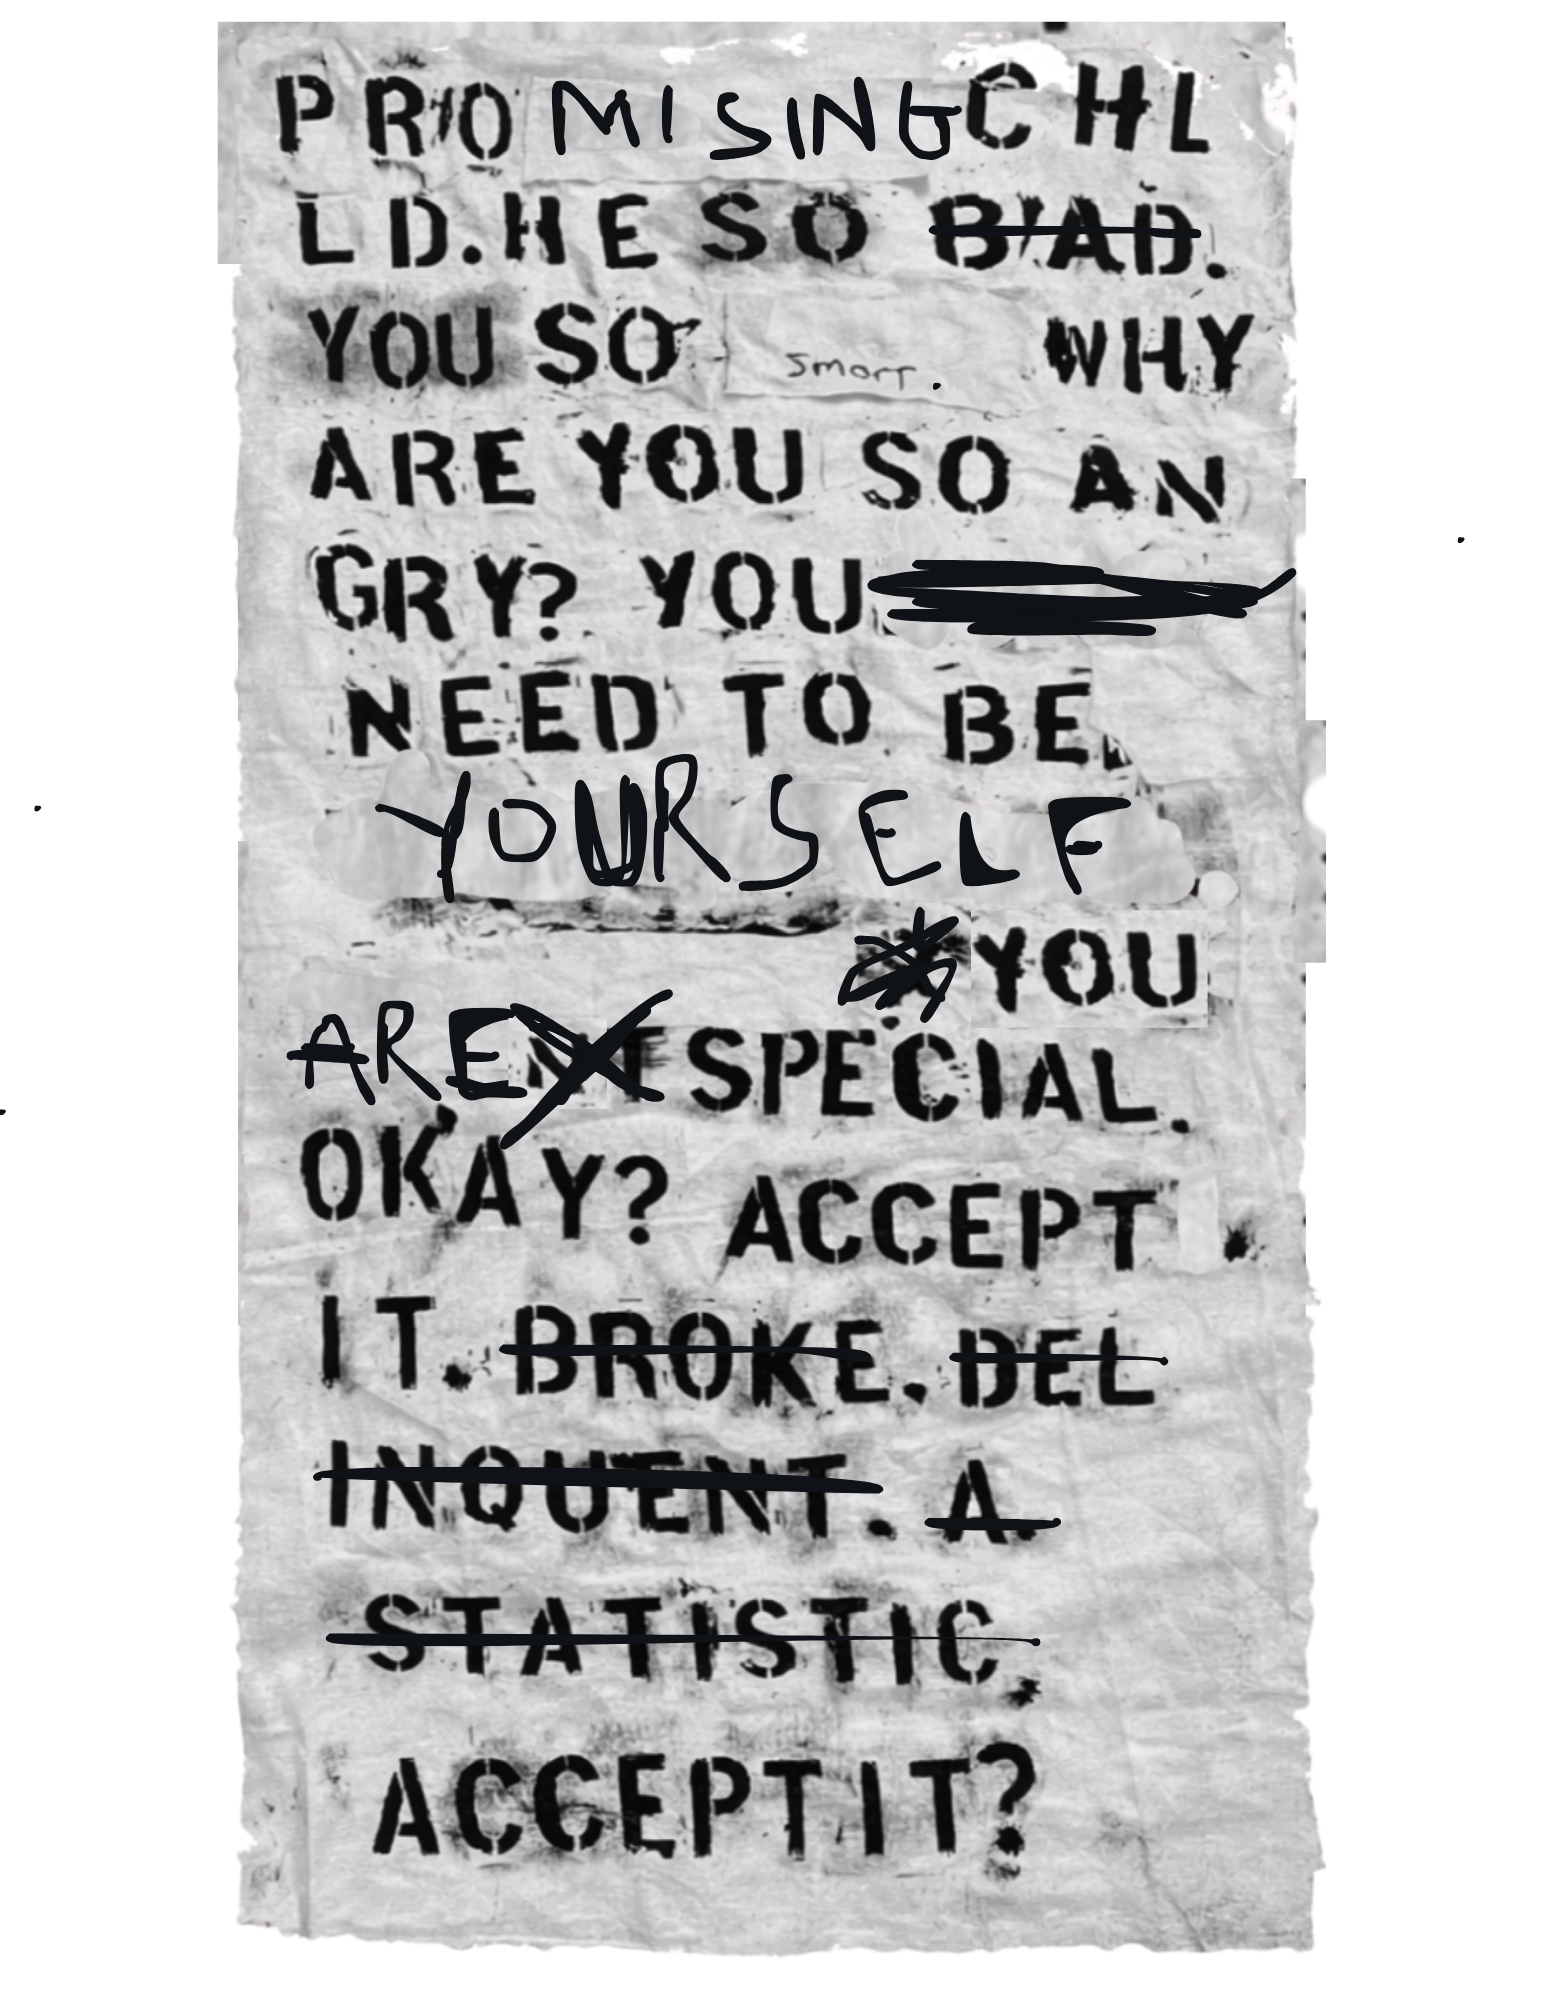 PROMISING CHL
LD. HE SO BAD.
YOU SO smart. WHY
ARE YOU SO AN
GRY? YOU
NEED TO BE
YOURSELF
YOU
ARENT SPECIAL.
OKAY? ACCEPT
IT. BROKE. DEL
INQUENT. A
STATISTIC.
ACCEPT IT?